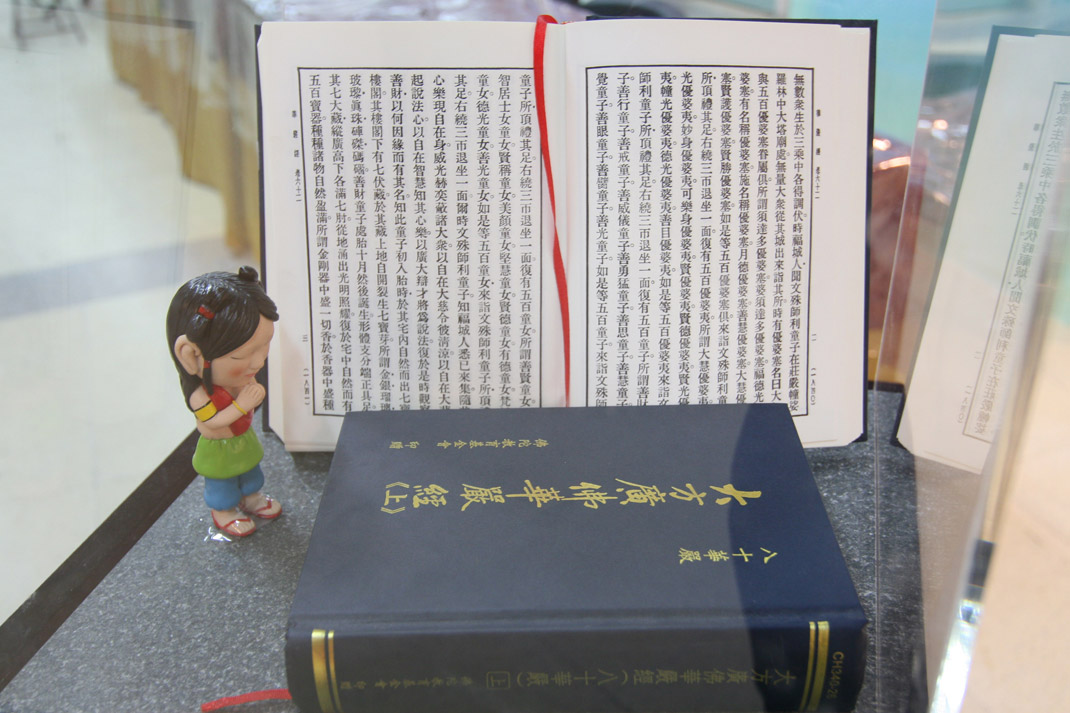 華嚴經 卷六十二
無數衆生於三乘中各得調伏時福城人聞文殊師利童子在莊嚴幢娑
羅林中大塔廟處無量大衆從其城出來詣其所時有優婆塞名曰大
與五百優婆塞眷屬俱所謂須達多優婆塞婆須達多優婆塞福德光
婆塞有名稱優婆塞施名稱優婆塞月德優婆塞善慧優婆塞大慧優
塞賢護優婆塞賢勝優婆塞如是等五百優婆塞俱來詣文殊師利童
所頂禮其足右繞三帀退坐一面復有五百優婆夷所謂大慧優婆夷
光優婆夷妙身優婆夷可樂身優婆夷賢優婆夷賢德優婆夷賢光優
夷幢光優婆夷德光優婆夷善目優婆夷如是等五百優婆夷來詣文
師利童子所頂禮其足右繞三帀退坐一面復有五百童子所謂善財
子善行童子善戒童子善威儀童子善勇猛童子善思童子善慧童子
覺童子善眼童子善臂童子善光童子如是等五百童子來詣文殊師
二
一八四〇
童子所頂禮其足右繞三帀退坐一面復有五百童女所謂善賢童女
智居士女童女賢稱童女美顏童女堅慧童女賢德童女有德童女梵
童女德光童女善光童女如是等五百童女來詣文殊師利童子所頂
其足右繞三帀退坐一面爾時文殊師利童子知福城人悉已來集隨其
心樂現自在身威光赫奕蔽諸大衆以自在大慈令彼清涼以自在大悲
起說法心以自在智慧知其心樂以廣大辯才將爲說法復於是時觀察
善財以何因緣而有其名知此童子初入胎時於其宅內自然而出七寶
樓閣其樓閣下有七伏藏於其藏上地自開裂生七寶芽所謂金銀瑠璃
玻瓈真珠硨磲碼碯善財童子處胎十月然後誕生形體支分端正具足
其七大藏縱廣高下各滿七肘從地涌出光明照耀復於宅中自然而有
五百寶器種種諸物自然盈滿所謂金剛器中盛一切香於香器中盛種
華嚴經 卷六十二
三
一八四一
八十華嚴
大方廣佛華嚴經《上》
佛陀教育基金會 印贈
大方廣佛華嚴經(八十華嚴) 上 佛陀教育基金會 印贈